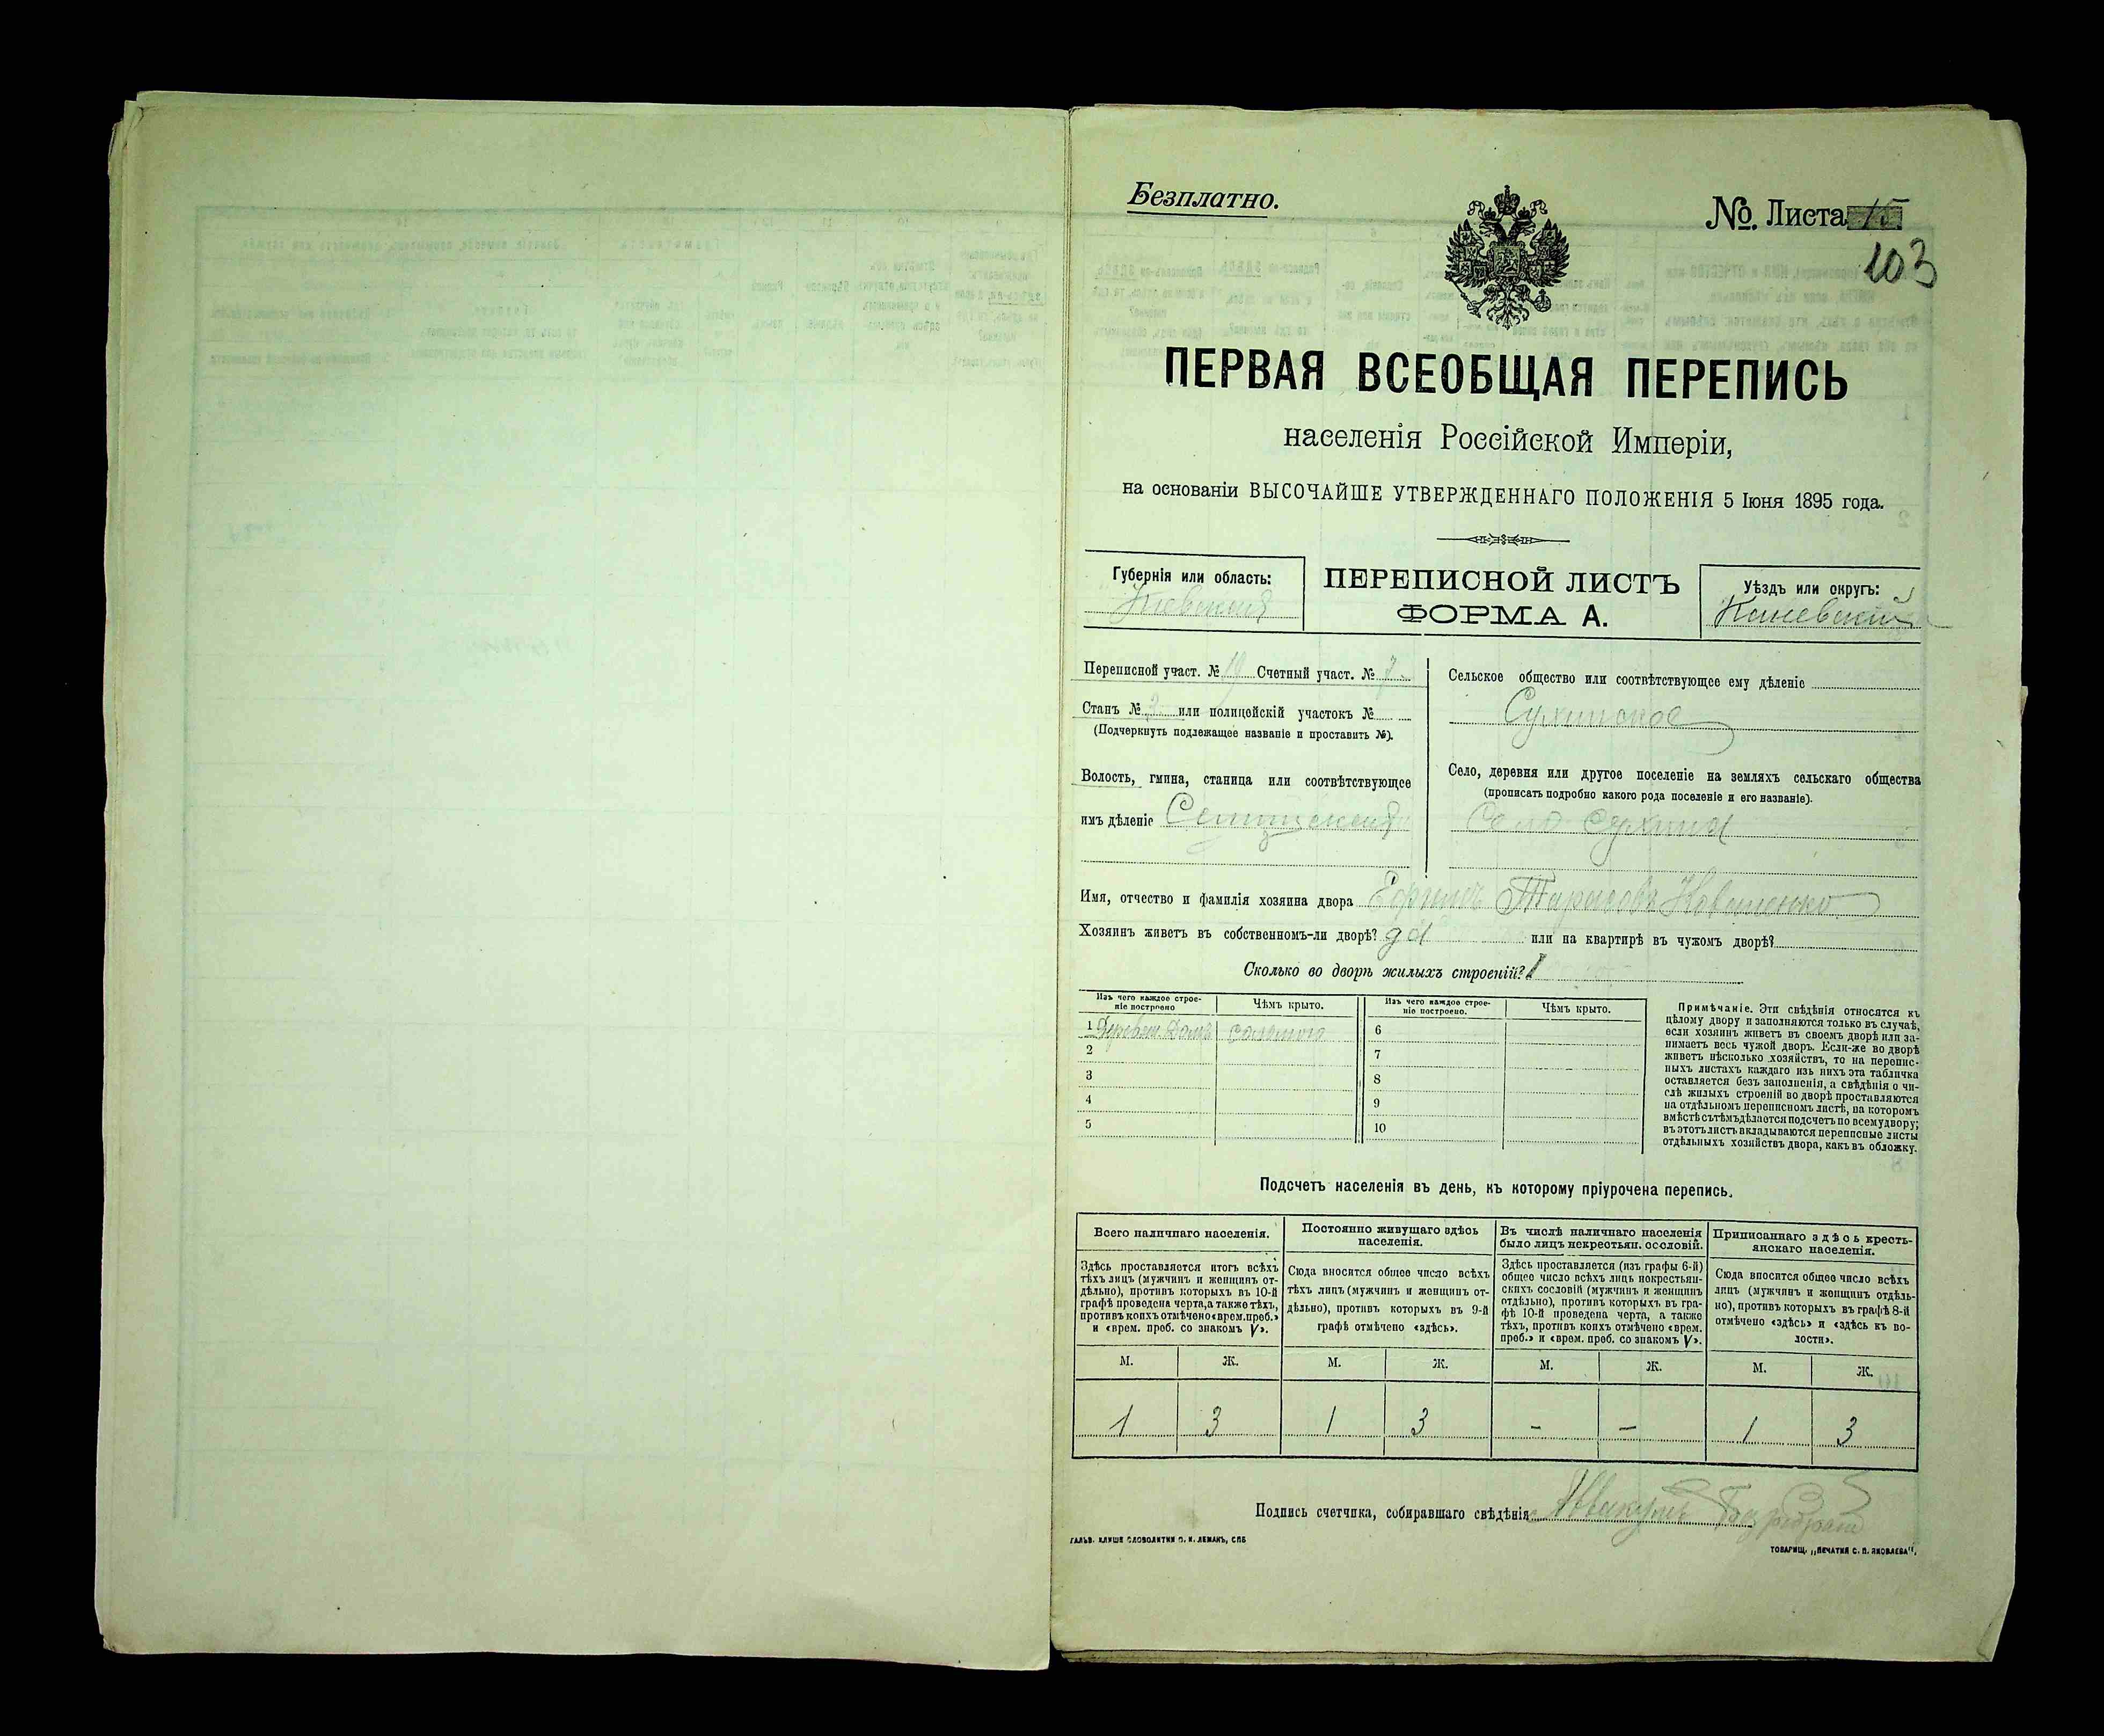 Безплатно.
№. Листа 15
103
ПЕРВАЯ ВСЕОБЩАЯ ПЕРЕПИСЬ
населенія Россійской Имперіи,
на основаніи ВЫСОЧАЙШЕ УТВЕРЖДЕННАГО ПОЛОЖЕНІЯ 5 Іюня 1895 года.
Губернія или область:
Кіевская
ПЕРЕПИСНОЙ ЛИСТЪ
ФОРМА А.
Уѣздъ или округъ:
Каневскій
Переписной участ. № 19 Счетный участ. № 7
Станъ № 3 или полицейскій участокъ №
(Подчеркнуть подлежащее названіе и проставить №).
Волость, гмина, станица или соотвѣтствующее
имъ дѣленіе
Сельское общество или соотвѣтствующее ему дѣленіе
Сухинское
Село, деревня или другое поселеніе на земляхъ сельскаго общества
(прописать подробно какого рода поселеніе и его названіе).
Село Сухины
Имя, отчество и фамилія хозяина двора Ефримъ Тарасовъ Коваленко
Хозяинъ живетъ въ собственномъ-ли дворѣ? да или на квартирѣ въ чужомъ дворѣ?
Сколько во дворѣ жилыхъ строеній? 1
Изъ чего каждое строе-
ніе построено
Чѣмъ крыто.
Изъ чего каждое строе-
ніе построено.
Чѣмъ крыто.
1 Деревян. Домъ соломою
2
3
4
5
6
7
8
9
10
Примѣчаніе. Эти свѣдѣнія относятся къ
цѣлому двору и заполняются только въ случаѣ,
если хозяинъ живетъ въ своемъ дворѣ или за-
нимаетъ весь чужой дворъ. Если-же во дворѣ
живетъ нѣсколько хозяйствъ, то на перепис-
ныхъ листахъ каждаго изъ нихъ эта табличка
оставляется безъ заполненія, а свѣдѣнія о чи-
слѣ жилыхъ строеній во дворѣ проставляются
на отдѣльномъ переписномъ листѣ, на которомъ
вмѣстѣ съ тѣмъ дѣлается подсчетъ по всему двору;
въ этотъ листъ вкладываются переписные листы
отдѣльныхъ хозяйствъ двора, какъ въ обложку.
Подсчетъ населенія въ день, къ которому пріурочена перепись.
Всего наличнаго населенія.
Здѣсь проставляется итогъ всѣхъ
тѣхъ лицъ (мужчинъ и женщинъ от-
дѣльно), противъ которыхъ въ 10-й
графѣ проведена черта, а также тѣхъ,
противъ коихъ отмѣчено «врем. преб.»
и «врем. преб. со знакомъ V».
Постоянно живущаго здѣсь
населенія.
Сюда вносится общее число всѣхъ
тѣхъ лицъ (мужчинъ и женщинъ от-
дѣльно), противъ которыхъ въ 9-й
графѣ отмѣчено «здѣсь».
Въ числѣ наличнаго населенія
было лицъ некрестьян. сословій.
Здѣсь проставляется (изъ графы 6-й)
общее число всѣхъ лицъ некрестьян-
скихъ сословій (мужчинъ и женщинъ
отдѣльно), противъ которыхъ въ гра-
фѣ 10-й проведена черта, а также
тѣхъ, противъ коихъ отмѣчено «врем.
преб.» и «врем. преб. со знакомъ V».
Приписаннаго здѣсь кресть-
янскаго населенія.
Сюда вносится общее число всѣхъ
лицъ (мужчинъ и женщинъ отдѣль-
но), противъ которыхъ въ графѣ 8-й
отмѣчено «здѣсь» и «здѣсь къ во-
лости».
М. Ж. М. Ж. М. Ж. М. Ж.
1 3 1 3 - - 1 3
Подпись счетчика, собиравшаго свѣдѣнія Аввакумъ
ГАЛЬВ. КЛИШЕ СЛОВОЛИТНИ О. И. ЛЕМАНЪ, СПБ
ТОВАРИЩ. „ПЕЧАТНЯ С. П. ЯКОВЛЕВА".